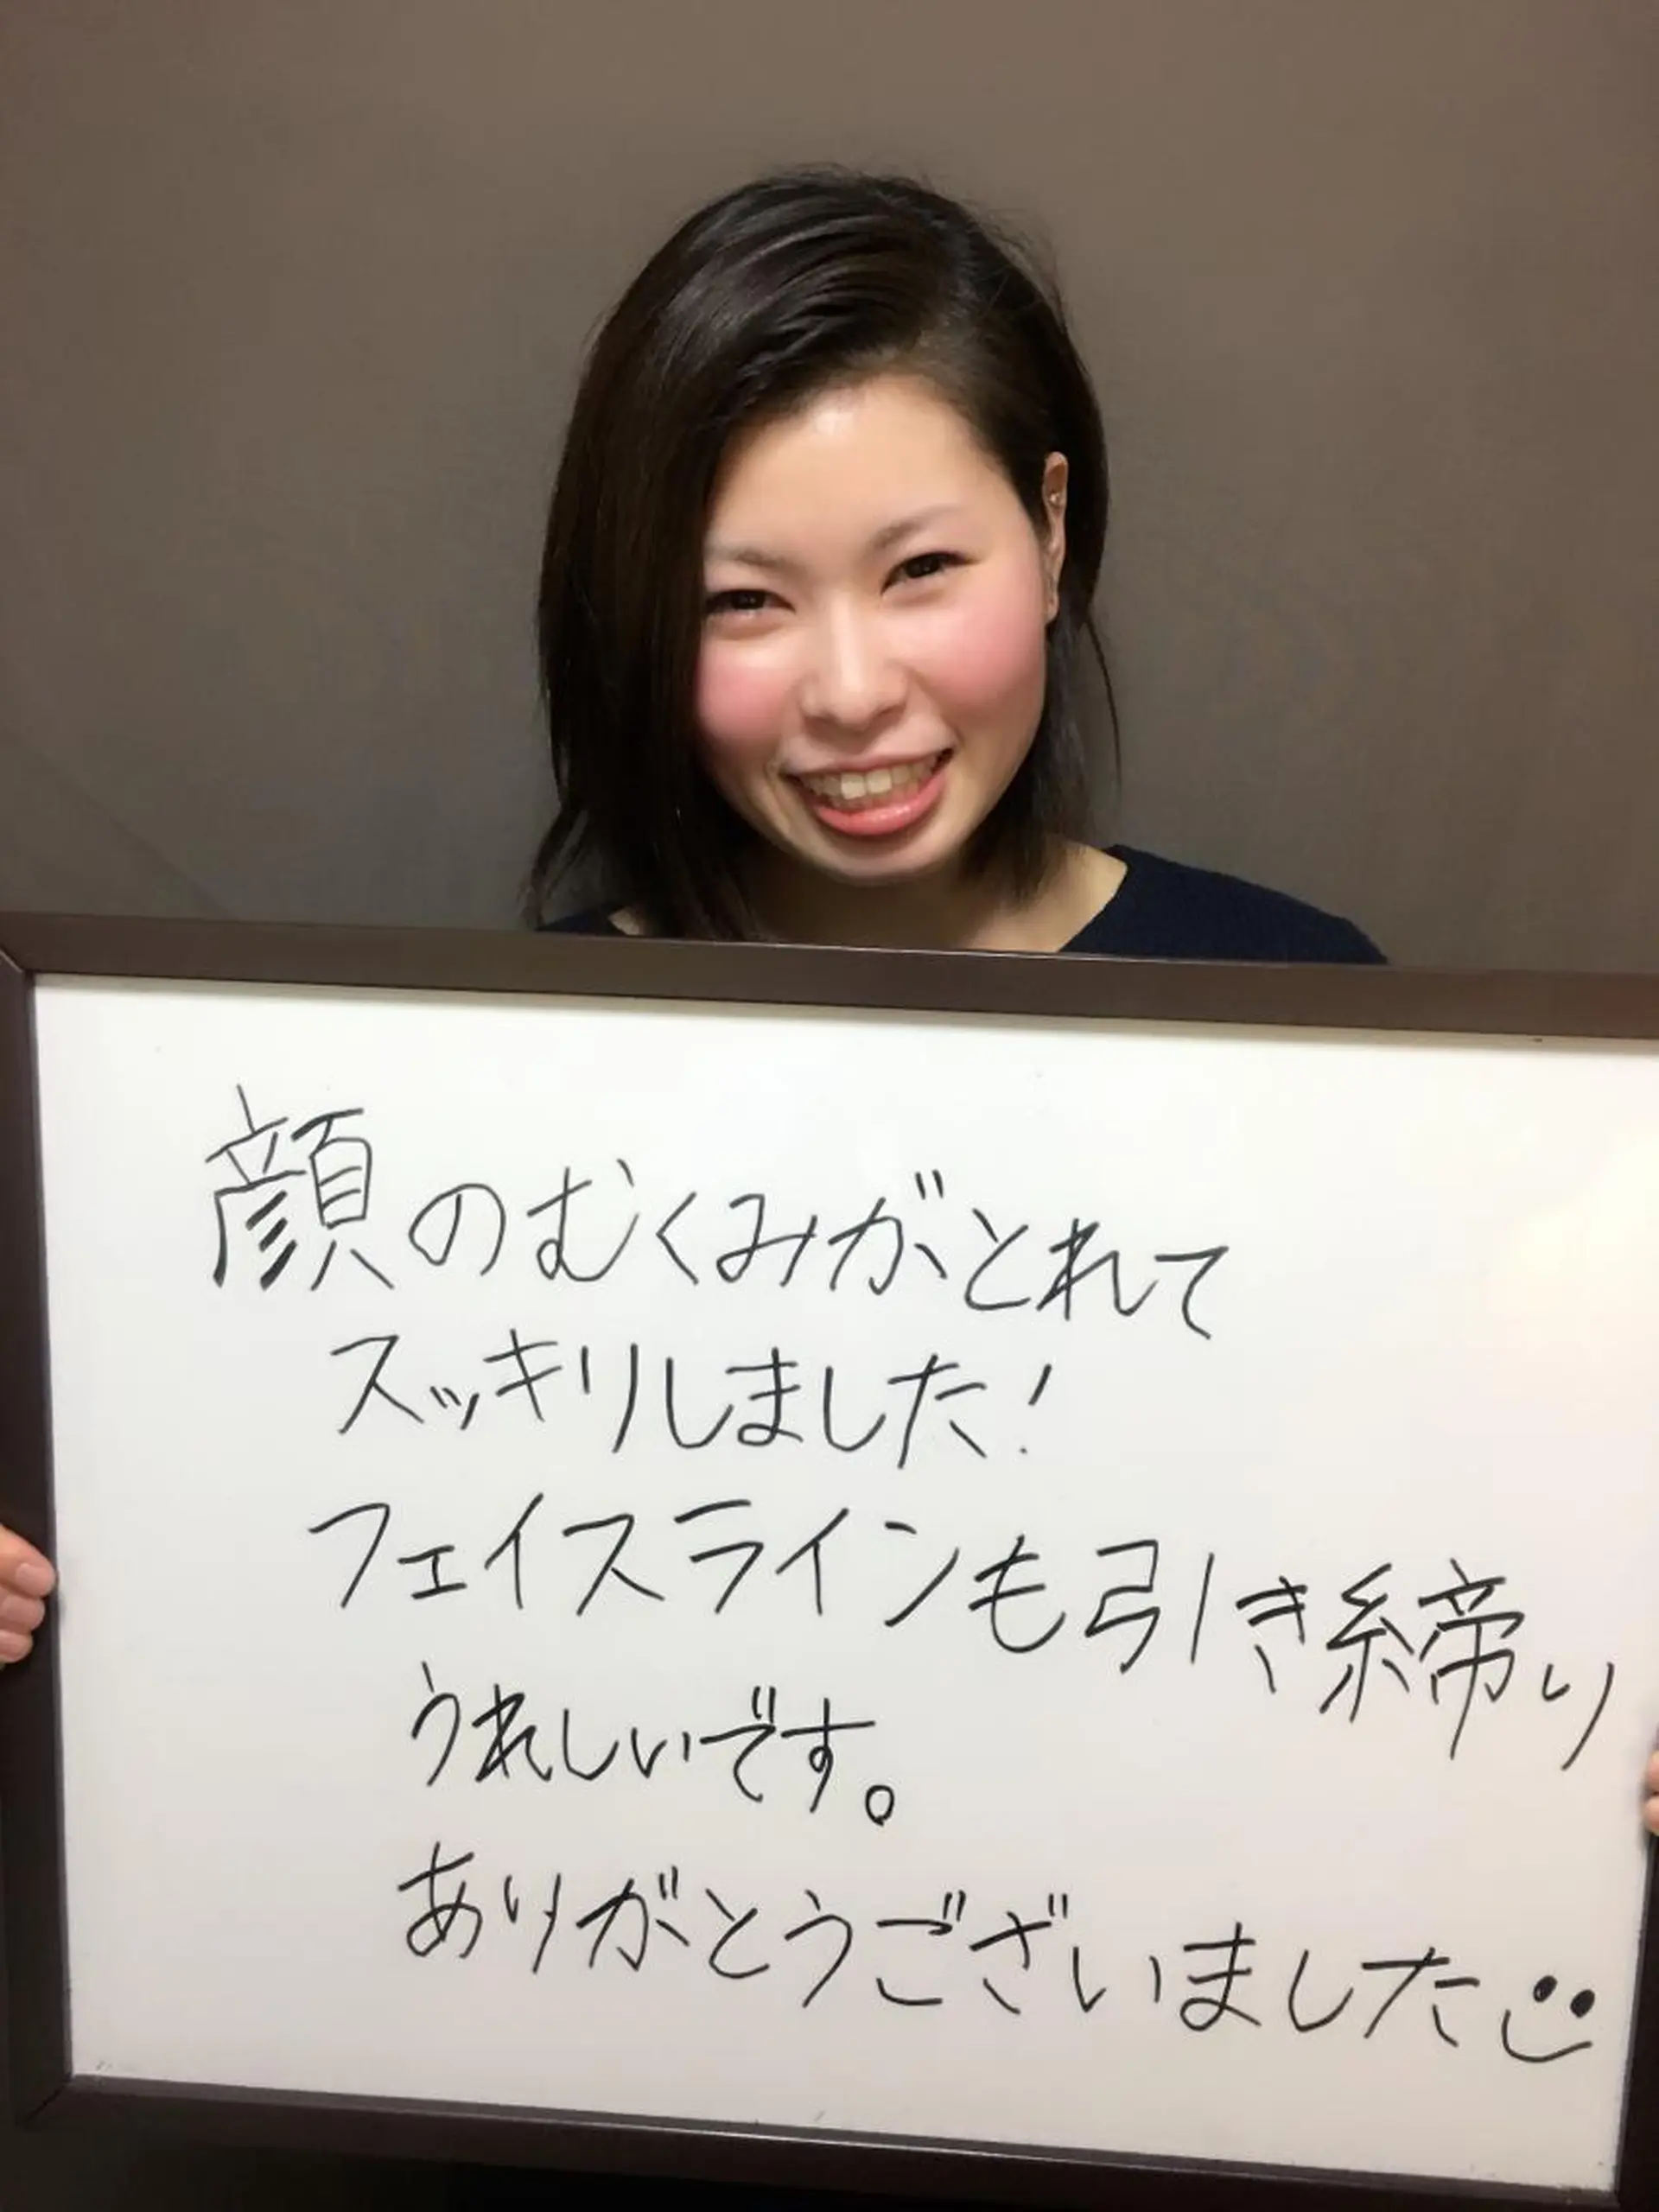 顔のむくみがとれて
スッキリしました!
フェイスラインも引き締り
うれしいです。
ありがとうございました